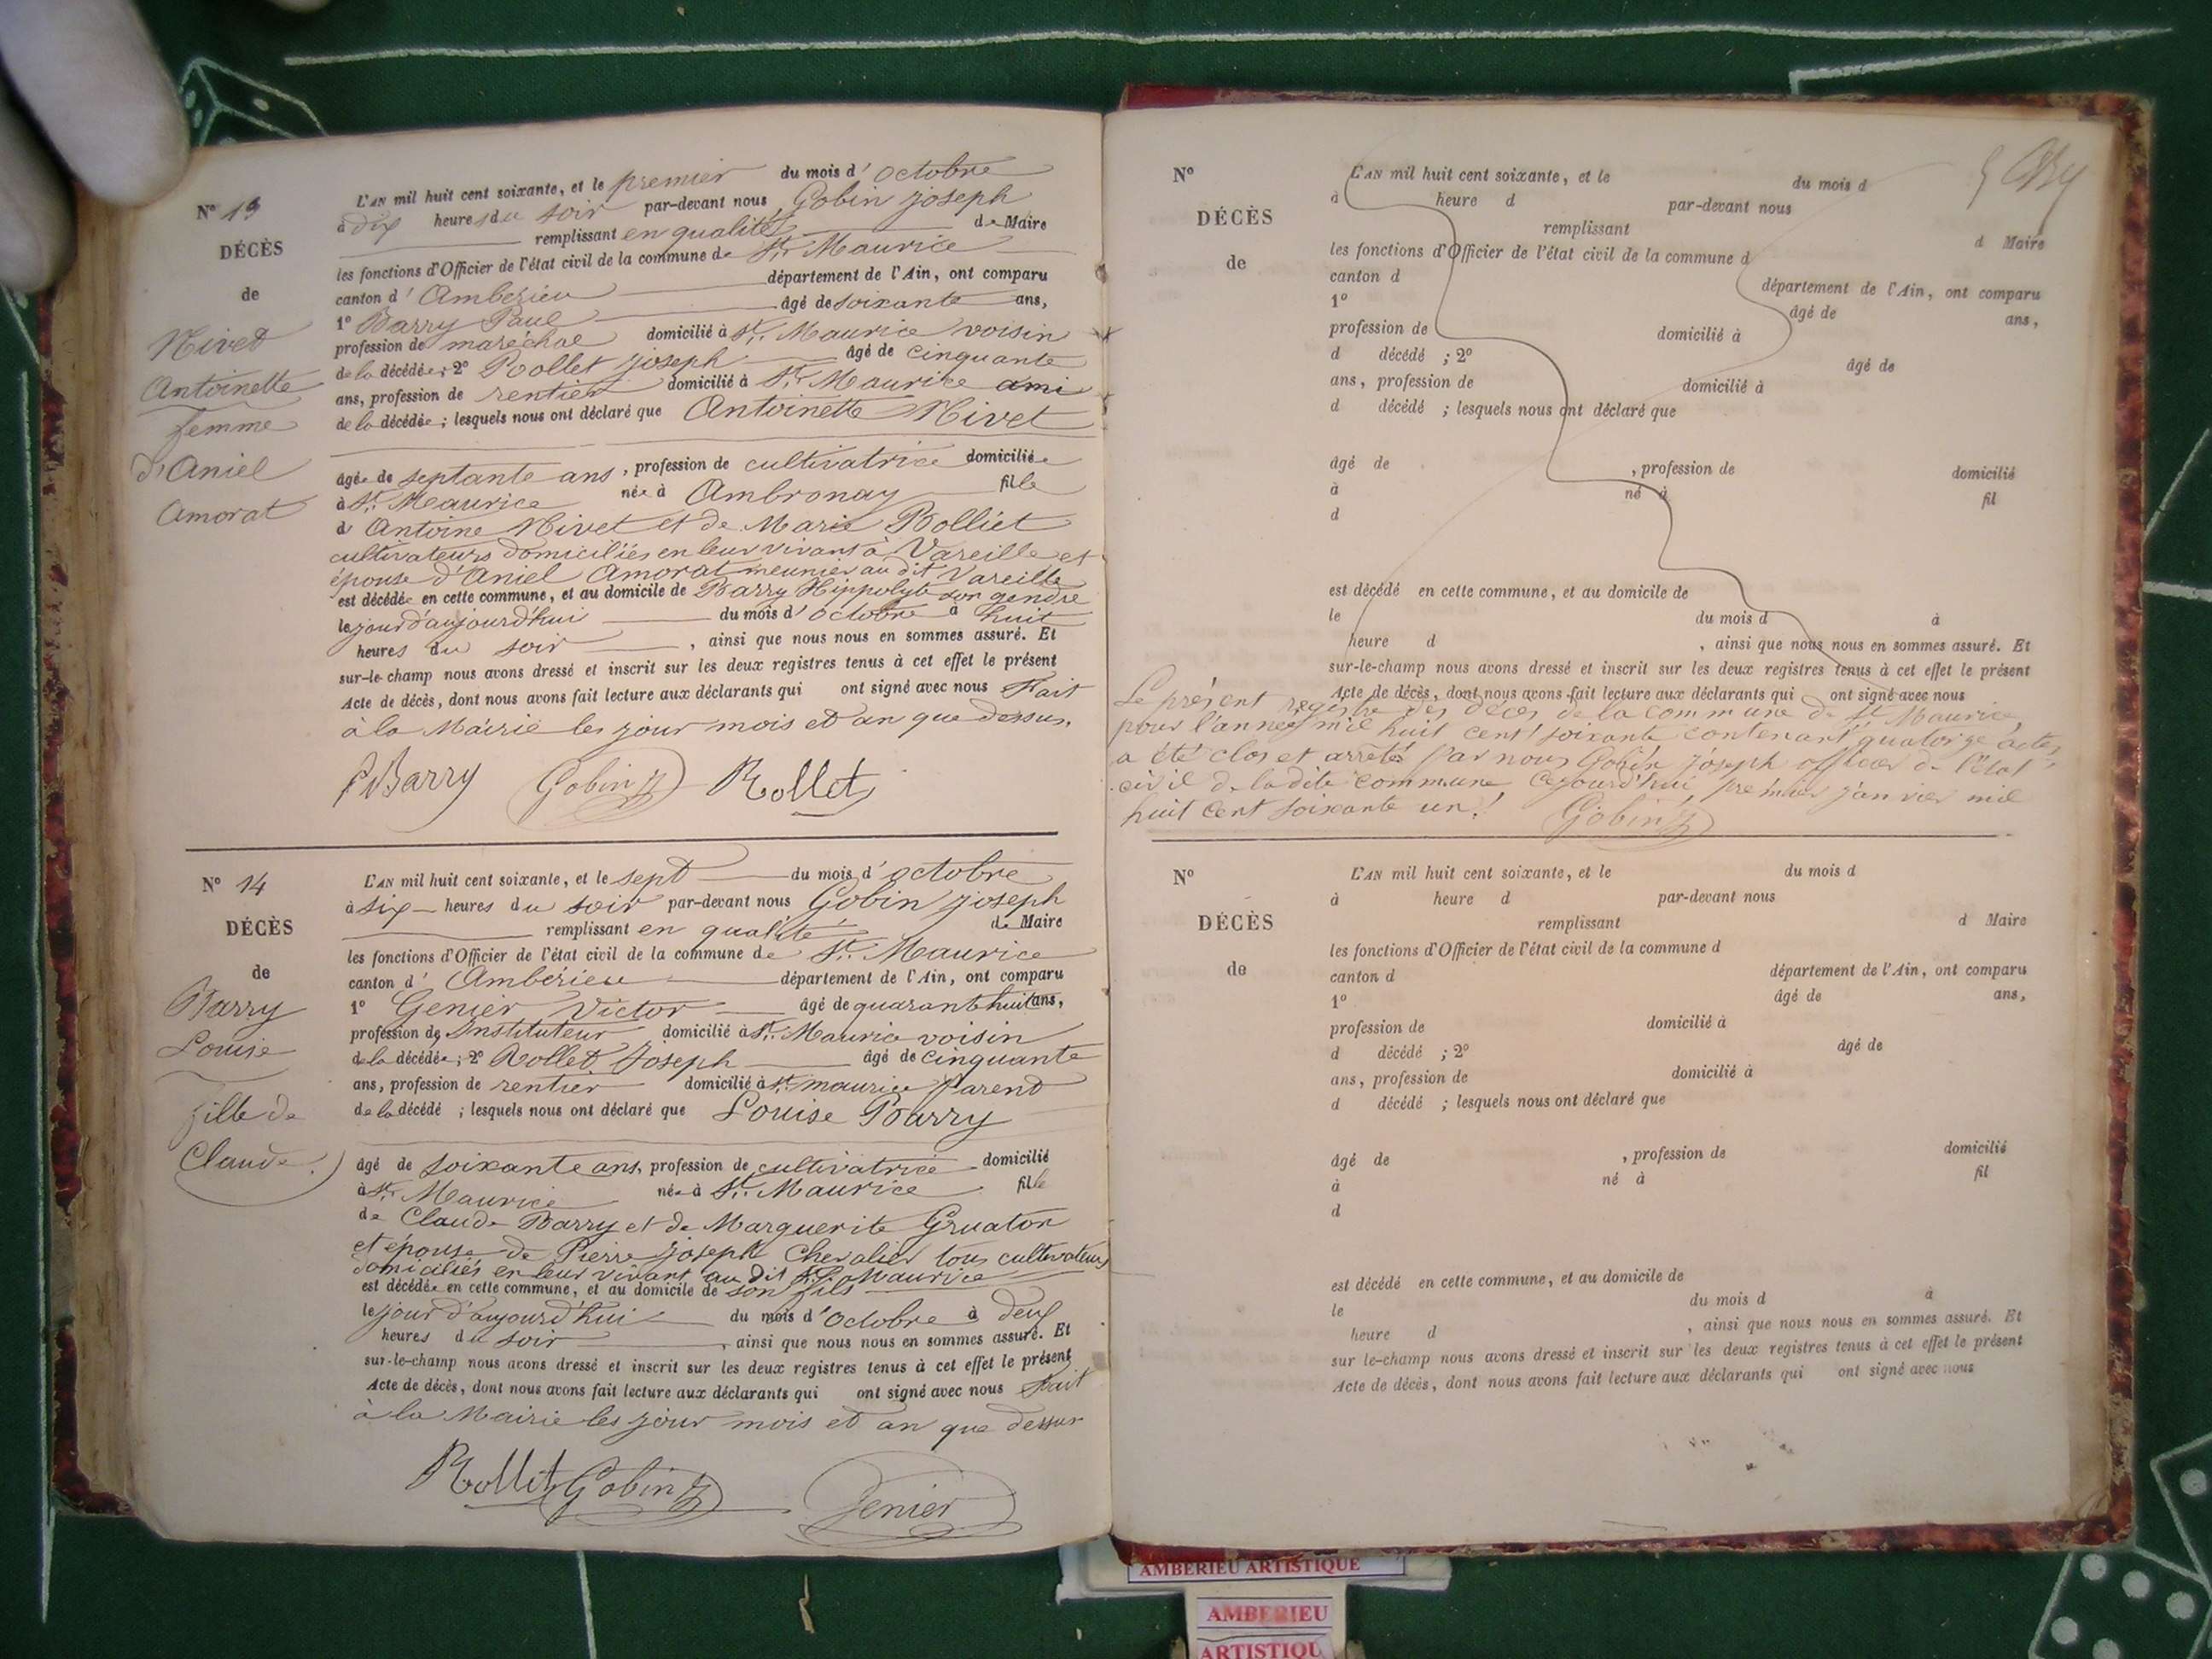 N° 13
DÉCÈS
de
Nivet
Antoinette
femme
d'Aniel
Amorat
L'AN mil huit cent soixante, et le premier du mois d'octobre
à dix heures du soir par-devant nous Gobin joseph
remplissant en qualité de Maire
les fonctions d'Officier de l'état civil de la commune de St. Maurice
canton d'Ambérieu département de l'Ain, ont comparu
1° Barry Paul âgé de soixante ans,
profession de maréchal domicilié à St. Maurice voisin
de la décédée; 2° Rollet joseph âgé de cinquante
ans, profession de rentier domicilié à St Maurice ami
de la décédée; lesquels nous ont déclaré que Antoinette Nivet
âgée de septante ans, profession de cultivatrice domiciliée
à St. Maurice née à Ambronay fille
d'Antoine Nivet et de Marie Bolliet
cultivateurs domiciliés en leur vivant à Vareille et
épouse d'Aniel Amorat meunier au dit Vareille
est décédée en cette commune, et au domicile de Barry Hippolyte son gendre
le jour d'aujourd'hui du mois d'octobre à huit
heures du soir, ainsi que nous nous en sommes assuré. Et
sur-le-champ nous avons dressé et inscrit sur les deux registres tenus à cet effet le présent
Acte de décès, dont nous avons fait lecture aux déclarants qui ont signé avec nous Fait
à la Mairie les jour mois et an que dessus.
PBarry Gobin J Rollet
N° 14
DÉCÈS
de
Barry
Louise
fille de
Claude.
L'AN mil huit cent soixante, et le sept du mois d'octobre
à six heures du soir par-devant nous Gobin joseph
remplissant en qualité de Maire
les fonctions d'Officier de l'état civil de la commune de St. Maurice
canton d'Ambérieu département de l'Ain, ont comparu
1° Genier Victor âgé de quarante huit ans,
profession de Instituteur domicilié à St. Maurice voisin
de la décédée; 2° Rollet Joseph âgé de cinquante
ans, profession de rentier domicilié à St. maurice parent
de la décédé ; lesquels nous ont déclaré que Louise Barry
âgé de soixante ans, profession de cultivatrice domicilié
à St. Maurice née à St. Maurice fille
de Claude Barry et de Marguerite Gruaton
et épouse de Pierre joseph Chevalier tous cultivateurs
domiciliés en leur vivant au dit St. Maurice
est décédée en cette commune, et au domicile de son fils
le jour d'aujourd'hui du mois d'octobre à deux
heures du soir, ainsi que nous nous en sommes assuré. Et
sur-le-champ nous avons dressé et inscrit sur les deux registres tenus à cet effet le présent
Acte de décès, dont nous avons fait lecture aux déclarants qui ont signé avec nous Fait
à la Mairie les jour mois et an que dessus
Rollet Gobin J Genier
N°
DÉCÈS
de
L'AN mil huit cent soixante, et le du mois d
à heure d par-devant nous
remplissant d Maire
les fonctions d'Officier de l'état civil de la commune d
canton d département de l'Ain, ont comparu
1° âgé de ans,
profession de domicilié à
d décédé ; 2° âgé de
ans, profession de domicilié à
d décédé ; lesquels nous ont déclaré que
âgé de , profession de domicilié
à né à fil
d
est décédé en cette commune, et au domicile de
le du mois d à
heure d , ainsi que nous nous en sommes assuré. Et
sur-le-champ nous avons dressé et inscrit sur les deux registres tenus à cet effet le présent
Acte de décès, dont nous avons fait lecture aux déclarants qui ont signé avec nous
Le présent registre des décès de la commune de St Maurice,
pour l'année mil huit cent soixante contenant quatorze actes,
a été clos et arrêté par nous Gobin joseph officier de l'état
civil de la dite commune, cejourd'hui, premier janvier mil
huit cent soixante un.
Gobin J
N°
DÉCÈS
de
L'AN mil huit cent soixante, et le du mois d
à heure d par-devant nous
remplissant d Maire
les fonctions d'Officier de l'état civil de la commune d
canton d département de l'Ain, ont comparu
1° âgé de ans,
profession de domicilié à
d décédé ; 2° âgé de
ans, profession de domicilié à
d décédé ; lesquels nous ont déclaré que
âgé de , profession de domicilié
à né à fil
d
est décédé en cette commune, et au domicile de
le du mois d à
heure d , ainsi que nous nous en sommes assuré. Et
sur le-champ nous avons dressé et inscrit sur les deux registres tenus à cet effet le présent
Acte de décès, dont nous avons fait lecture aux déclarants qui ont signé avec nous
AMBERIEU ARTISTIQUE
AMBERIEU
ARTISTIQU